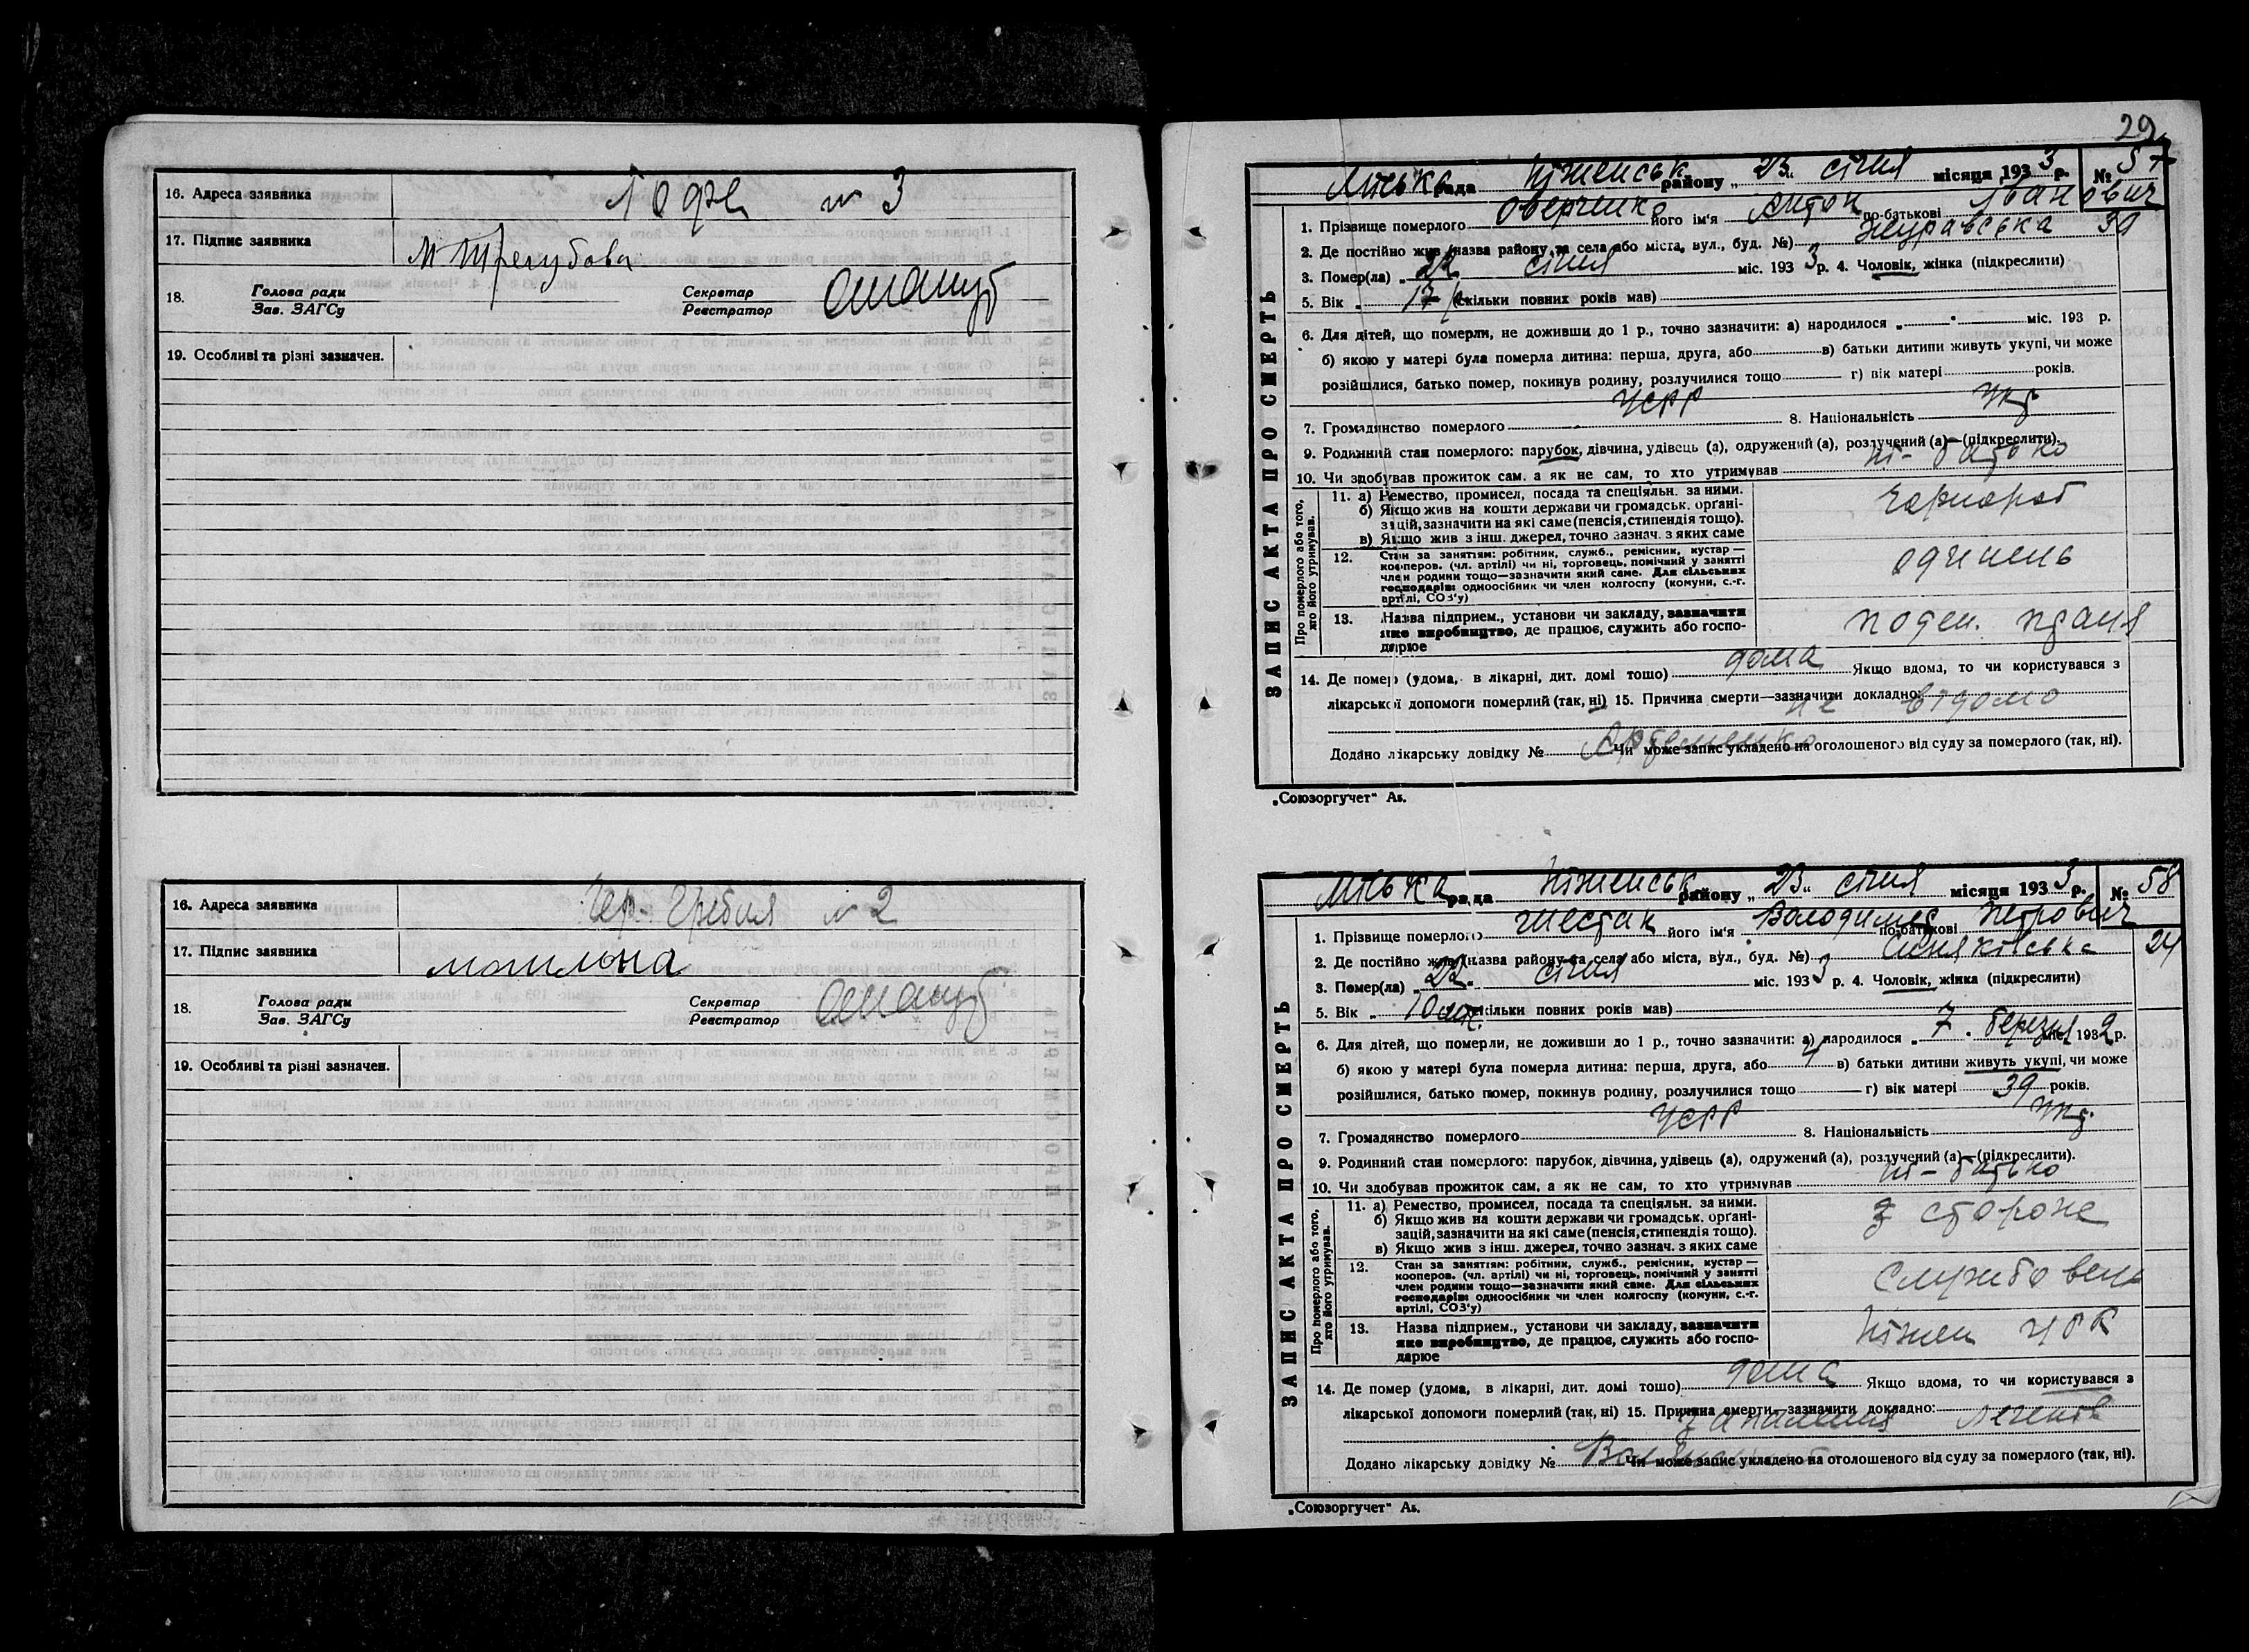 16. Адреса заявника
№ 3
17. Підпис заявника
М Трегубова
18. Голова ради Секретар
Зав. ЗАГСу Реєстратор
19. Особливі та різні зазначен.
16. Адреса заявника
Чер. Гребля № 2
17. Підпис заявника
18. Голова ради Секретар
Зав. ЗАГСу Реєстратор
19. Особливі та різні зазначен.
29
ЗАПИС АКТА ПРО СМЕРТЬ
Міська рада Ніженськ району „23„ січня місяця 1933 р. № 57
1. Прізвище померлого Оверченко його ім'я Антон по-батькові Іванович
2. Де постійно жив (назва району та села або міста, вул., буд. №) Журавська 39
3. Помер(ла) „22 січня міс. 1933 р. 4. Чоловік, жінка (підкреслити)
5. Вік „ 17 р. (скільки повних років мав)
6. Для дітей, що померли, не доживши до 1 р., точно зазначити: а) народилося „ " міс. 193 р.
б) якою у матері була померла дитина: перша, друга, або в) батьки дитини живуть укупі, чи може
розійшлися, батько помер, покинув родину, розлучилися тощо г) вік матері років.
7. Громадянство померлого УСРР 8. Національність Укр
9. Родинний стан померлого: парубок, дівчина, удівець (а), одружений (а), розлучений (а)—(підкреслити).
10. Чи здобував прожиток сам, а як не сам, то хто утримував ні - батько
Про померлого або того, хто його утримував.
11. а) Ремество, промисел, посада та спеціяльн. за ними.
б) Якщо жив на кошти держави чи громадськ. орґані-
зацій, зазначити на які саме (пенсія, стипендія тощо).
в) Якщо жив з інш. джерел, точно зазнач. з яких саме
чорнороб
12. Стан за заняттям: робітник, служб., ремісник, кустар —
кооперов. (чл. артілі) чи ні, торговець, помічний у занятті
член родини тощо—зазначити який саме. Для сільських
господарів: одноосібник чи член колгоспу (комуни, с.-г.
артілі, СОЗ'у)
13. Назва підприєм., установи чи закладу, зазначити
яке виробництво, де працює, служить або госпо-
дарює
поден. праця
14. Де помер (удома, в лікарні, дит. домі тощо) дома Якщо вдома, то чи користувався з
лікарської допомоги померлий (так, ні) 15. Причина смерти—зазначити докладно: не відомо
Додано лікарську довідку № Артеменко Чи може запис укладено на оголошеного від суду за померлого (так, ні).
„Союзоргучет" Аб.
ЗАПИС АКТА ПРО СМЕРТЬ
Міська рада Ніженськ району „23„ січня місяця 1933 р. № 58
1. Прізвище померлого Шестак його ім'я Володимир по-батькові Петрович
2. Де постійно жив (назва району та села або міста, вул., буд. №) Синяківська 24
3. Помер(ла) „22„ січня міс. 1933 р. 4. Чоловік, жінка (підкреслити)
5. Вік „ 10 міс. (скільки повних років мав)
6. Для дітей, що померли, не доживши до 1 р., точно зазначити: а) народилося „7. березня міс. 1932 р.
б) якою у матері була померла дитина: перша, друга, або 4 в) батьки дитини живуть укупі, чи може
розійшлися, батько помер, покинув родину, розлучилися тощо г) вік матері 39 років.
7. Громадянство померлого УСРР 8. Національність Укр.
9. Родинний стан померлого: парубок, дівчина, удівець (а), одружений (а), розлучений (а)—(підкреслити).
10. Чи здобував прожиток сам, а як не сам, то хто утримував ні - батько
Про померлого або того, хто його утримував.
11. а) Ремество, промисел, посада та спеціяльн. за ними.
б) Якщо жив на кошти держави чи громадськ. орґані-
зацій, зазначити на які саме (пенсія, стипендія тощо).
в) Якщо жив з інш. джерел, точно зазнач. з яких саме
стороже
12. Стан за заняттям: робітник, служб., ремісник, кустар —
кооперов. (чл. артілі) чи ні, торговець, помічний у занятті
член родини тощо—зазначити який саме. Для сільських
господарів: одноосібник чи член колгоспу (комуни, с.-г.
артілі, СОЗ'у)
службовець
13. Назва підприєм., установи чи закладу, зазначити
яке виробництво, де працює, служить або госпо-
дарює
Ніжен
14. Де помер (удома, в лікарні, дит. домі тощо) дома Якщо вдома, то чи користувався з
лікарської допомоги померлий (так, ні) 15. Причина смерти—зазначити докладно: запалення легенів
Додано лікарську довідку № Чи може запис укладено на оголошеного від суду за померлого (так, ні).
„Союзоргучет" Аб.